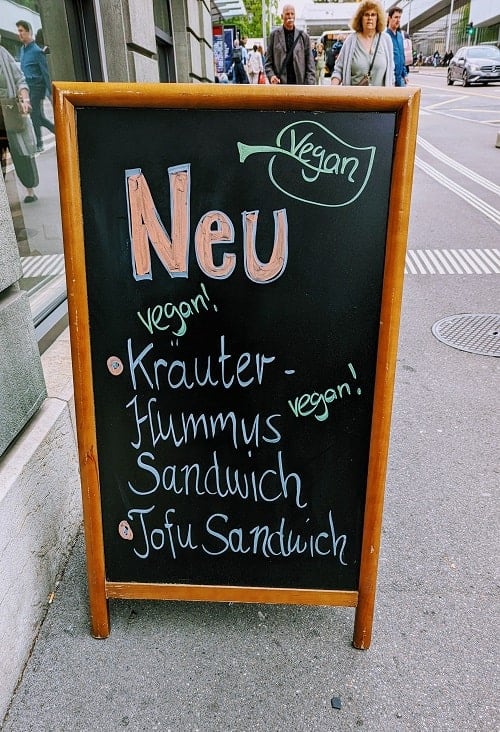 Vegan
Neu
vegan!
Kräuter-
Hummus
vegan!
Sandwich
Tofu Sandwich